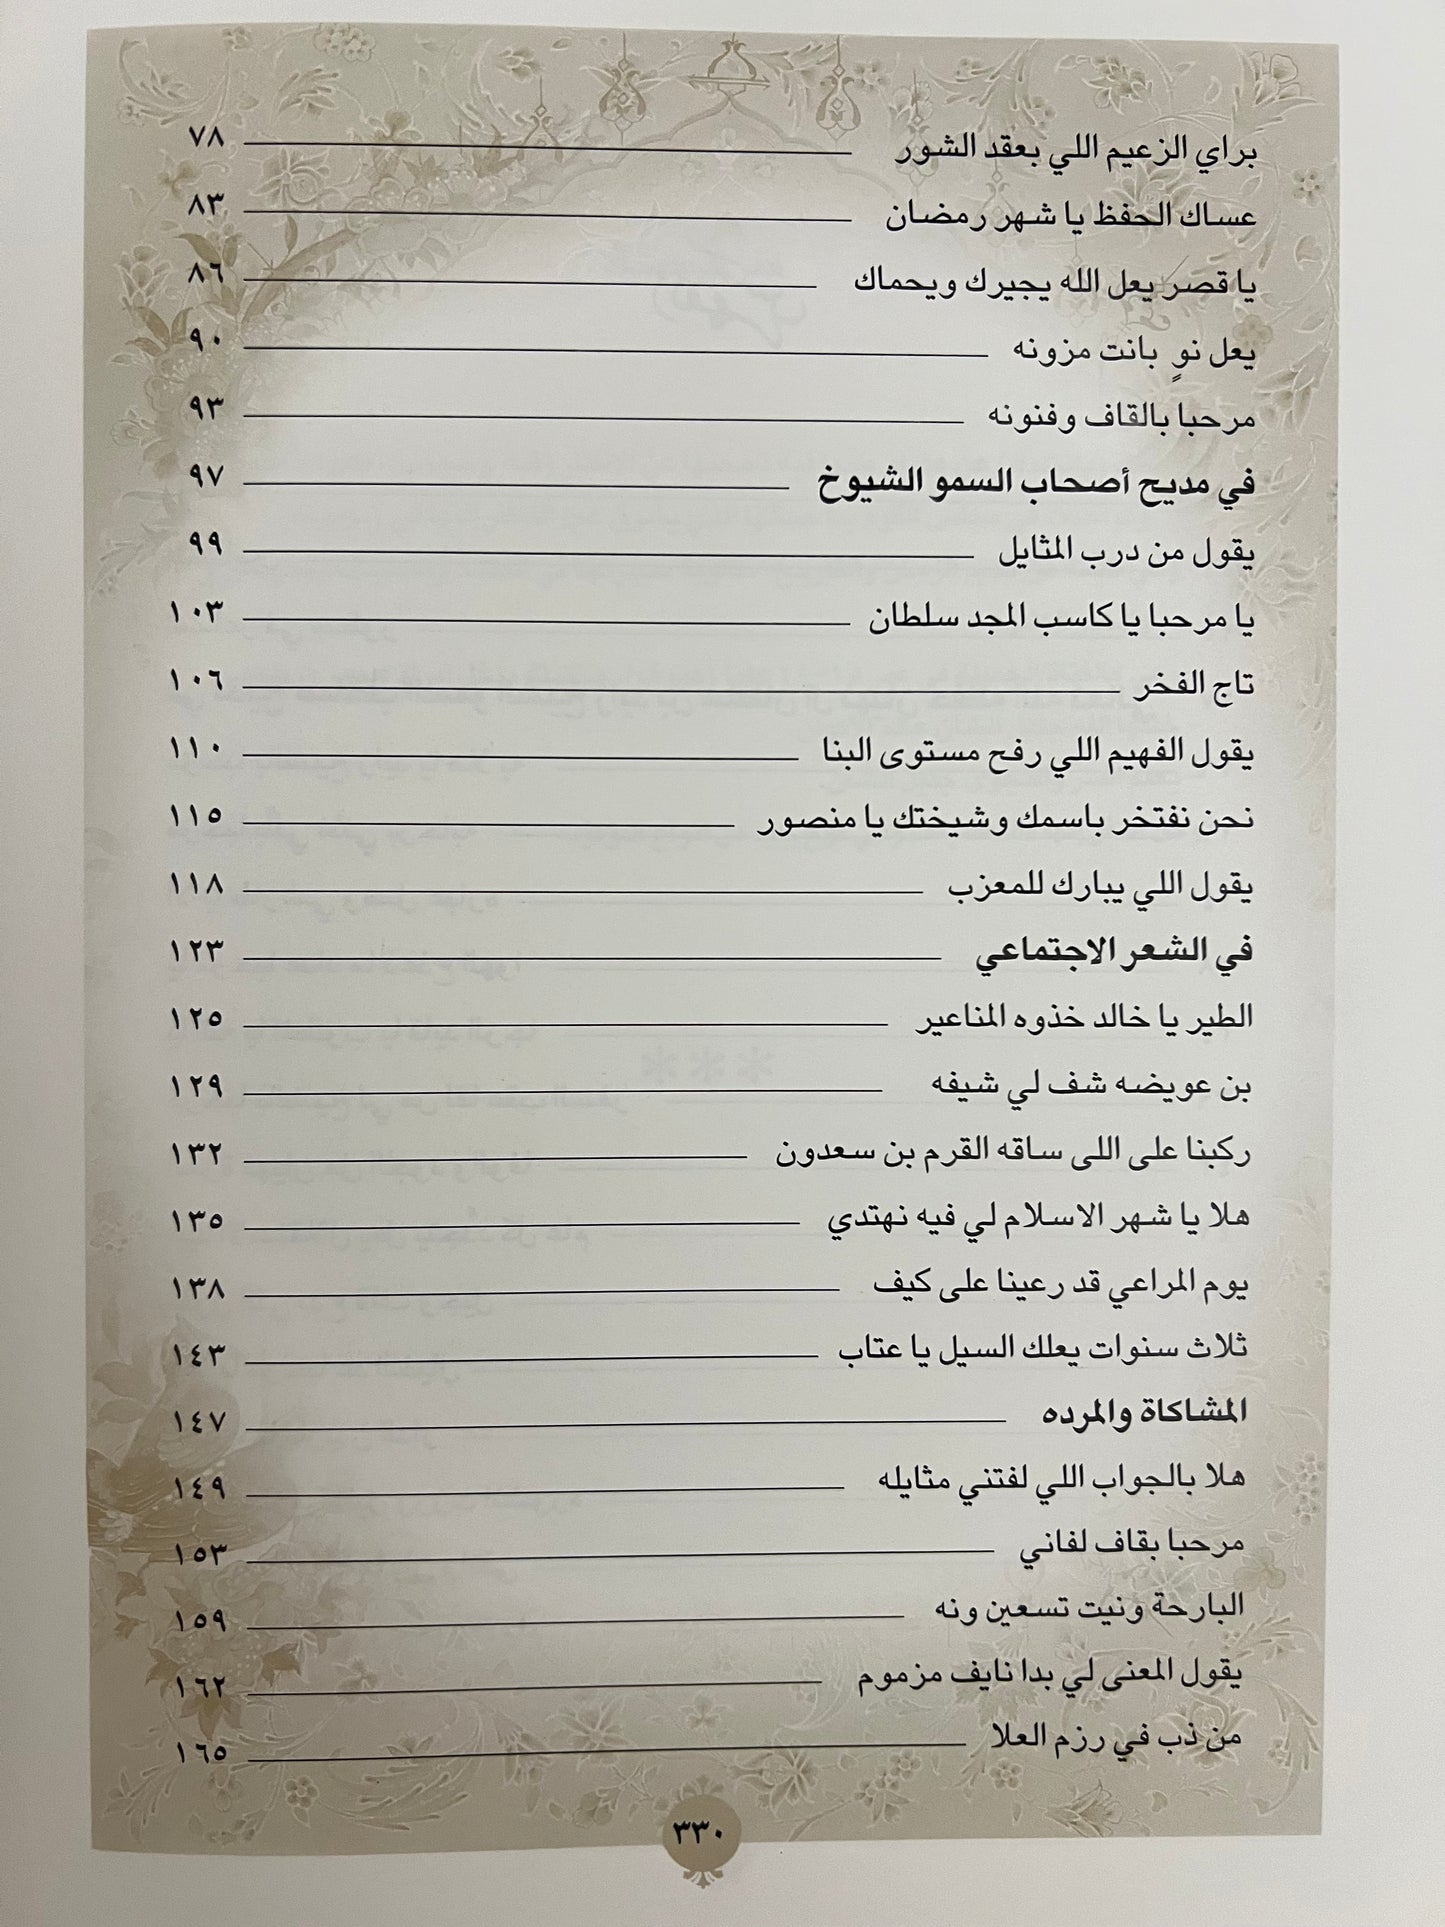 براي الزعيم اللي بعقد الشور ٧٨
عساك الحفظ يا شهر رمضان ٨٣
يا قصر يعل الله يجيرك ويحماك ٨٦
يعل نوٍ بانت مزونه ٩٠
مرحبا بالقاف وفنونه ٩٣
في مديح أصحاب السمو الشيوخ ٩٧
يقول من درب المثايل ٩٩
يا مرحبا يا كاسب المجد سلطان ١٠٣
تاج الفخر ١٠٦
يقول الفهيم اللي رفح مستوى البنا ١١٠
نحن نفتخر باسمك وشيختك يا منصور ١١٥
يقول اللي يبارك للمعزب ١١٨
في الشعر الاجتماعي ١٢٣
الطير يا خالد خذوه المناعير ١٢٥
بن عويضه شف لي شيفه ١٢٩
ركبنا على اللى ساقه القرم بن سعدون ١٣٢
هلا يا شهر الاسلام لي فيه نهتدي ١٣٥
يوم المراعي قد رعينا على كيف ١٣٨
ثلاث سنوات يعلك السيل يا عتاب ١٤٣
المشاكاة والمرده ١٤٧
هلا بالجواب اللي لفتني مثايله ١٤٩
مرحبا بقاف لفاني ١٥٣
البارحة ونيت تسعين ونه ١٥٩
يقول المعنى لي بدا نايف مزموم ١٦٢
من ذب في رزم العلا ١٦٥
٣٣٠